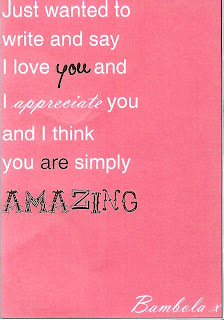 Just wanted to
write and say
I love you and
I appreciate you
and I think
you are simply
AMAZING
Bambola x